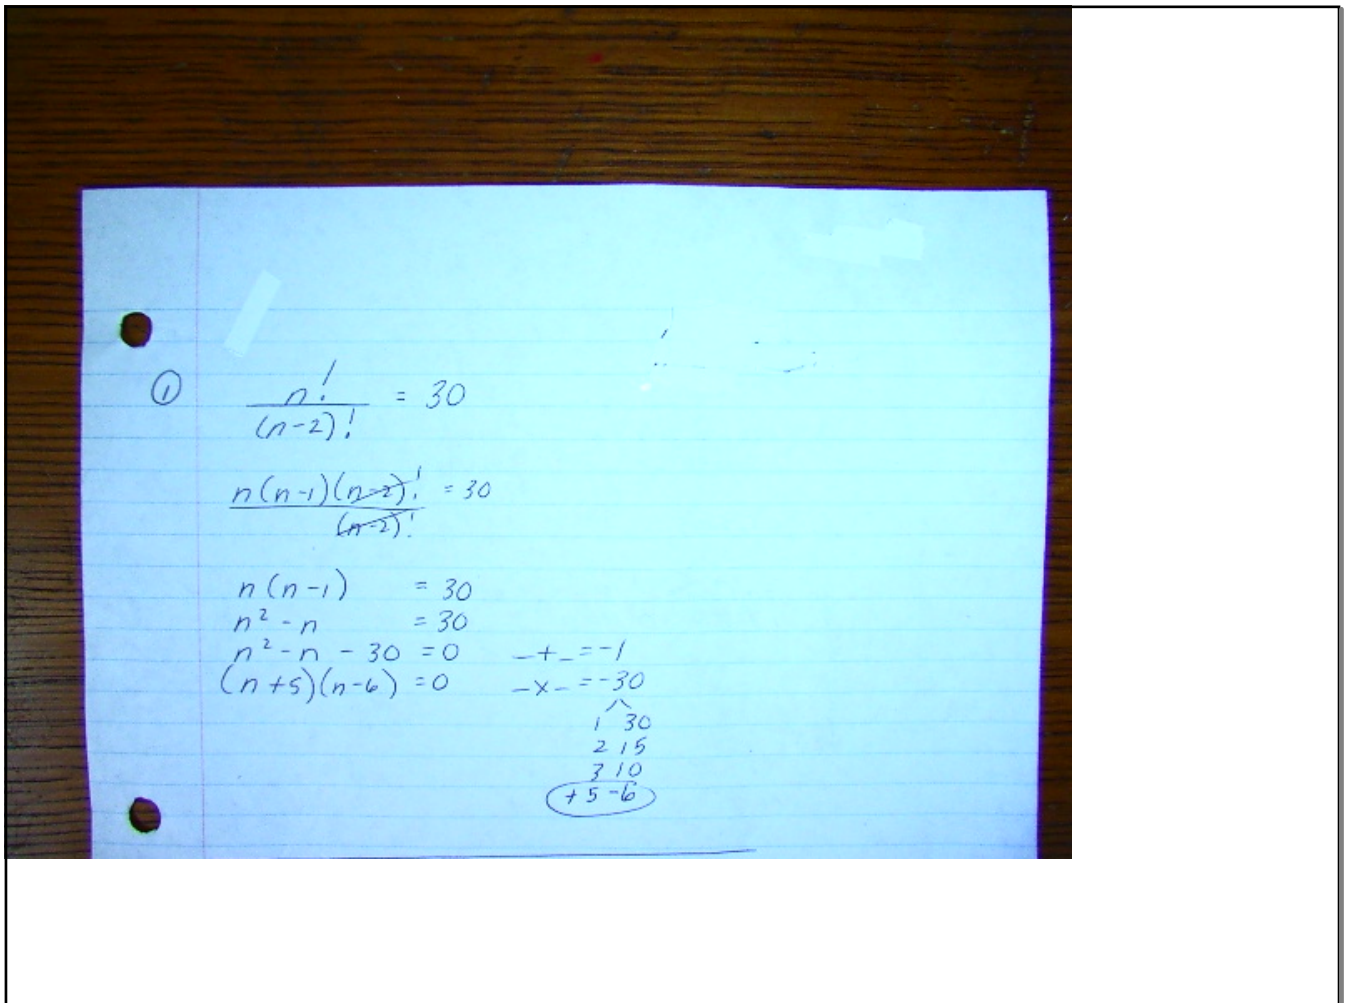 ① n! / (n-2)! = 30
n(n-1)(n-2)! / (n-2)! = 30
n(n-1) = 30
n² - n = 30
n² - n - 30 = 0
(n+5)(n-6) = 0
_+_ = -1
_x_ = -30
1 30
2 15
3 10
+5 -6